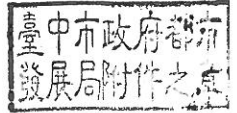 臺中市政府都市
發展局附件之章